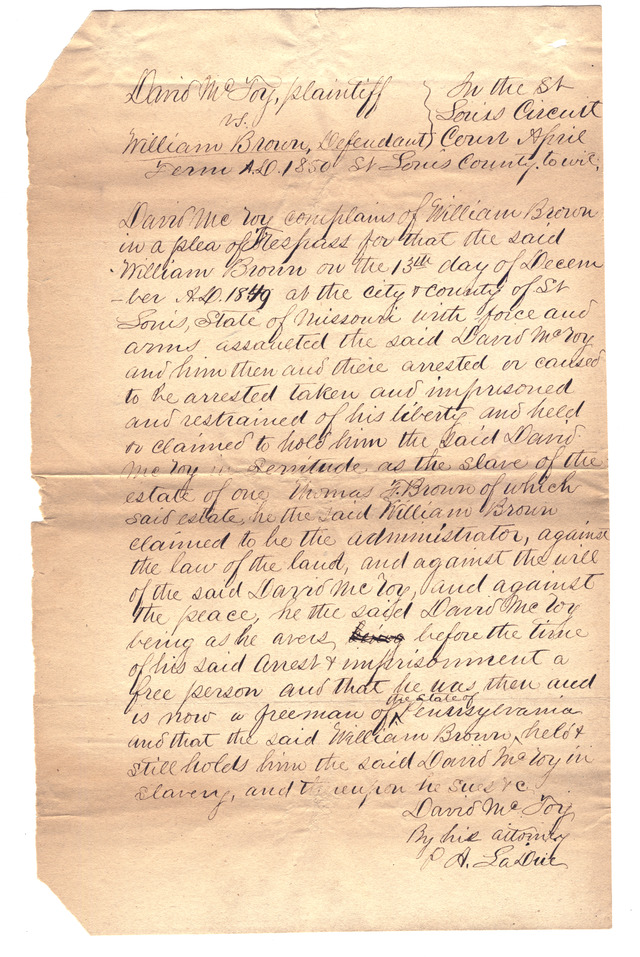 David McFoy, plaintiff } In the St
vs. Louis Circuit
William Brown, Defendant Court April
Term A.D. 1850 St Louis County to wit;
David McFoy complains of William Brown
in a plea of Trespass for that the said
William Brown on the 13th day of Decem
-ber A.D. 1849 at the city & county of St
Louis, State of Missouri with force and
arms assaulted the said David McFoy
and him then and there arrested or caused
to be arrested taken and imprisoned
and restrained of his liberty and held
or claimed to hold him the said David
McFoy in Servitude as the slave of the
estate of one Thomas F. Brown of which
said estate, he the said William Brown
claimed to be the administrator, against
the law of the land, and against the will
of the said David McFoy, and against
the peace, he the said David McFoy
being as he avers before the time
of his said arrest & imprisonment a
free person and that he was then and
is now a freeman of the State of Pennsylvania
and that the said William Brown held &
still holds him the said David McFoy in
slavery, and thereupon he sues &c
David McFoy
By his attorney
P A. LaDue